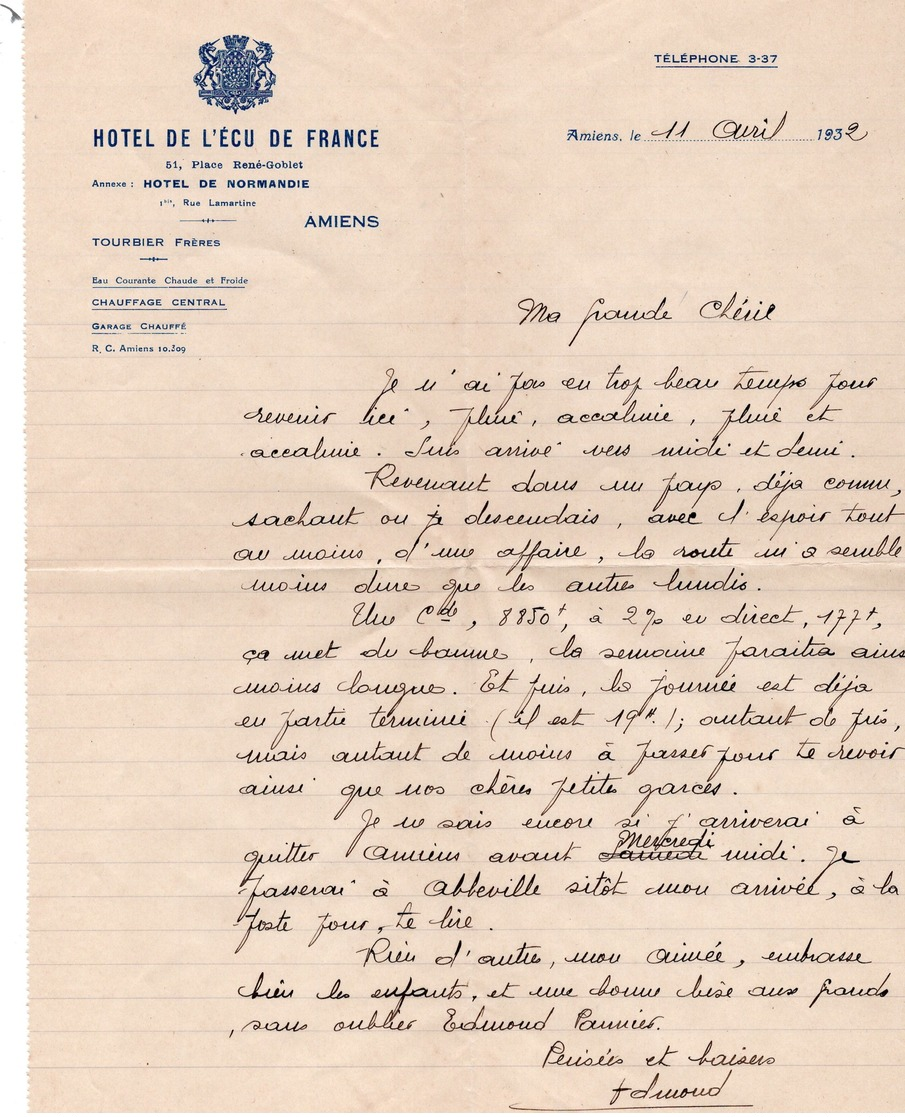 TÉLÉPHONE 3-37
HOTEL DE L'ÉCU DE FRANCE
Amiens, le 11 Avril 1932
51, Place René-Goblet
Annexe : HOTEL DE NORMANDIE
1bis, Rue Lamartine
AMIENS
TOURBIER FRÈRES
Eau Courante Chaude et Froide
CHAUFFAGE CENTRAL
GARAGE CHAUFFÉ
R. C. Amiens 10.309
Ma grande Chérie
Je n'ai pas eu trop beau temps pour
revenir ici, pluie, accalmie, pluie et
accalmie. Suis arrivé vers midi et demi.
Revenant dans un pays, déja connu,
sachant ou je descendais, avec l'espoir tout
au moins, d'une affaire, la route m'a semblé
moins dure que les autres lundis.
Une Cde, 8850f, à 2% en direct, 177f,
ça met du baume, la semaine paraitra ainsi
moins longue. Et puis, la journée est déja
en partie terminée (il est 19H.); autant de pris,
mais autant de moins à passer pour te revoir
ainsi que nos chères petites garces.
Je ne sais encore si j'arriverai à
quitter Amiens avant Mercredi midi. Je
passerai à Abbeville sitôt mon arrivée, à la
poste pour, te lire.
Rien d'autre, mon aimée, embrasse
bien les enfants, et une bonne bise aux grands
, sans oublier Edmond Pannier.
Pensées et baisers
Edmond